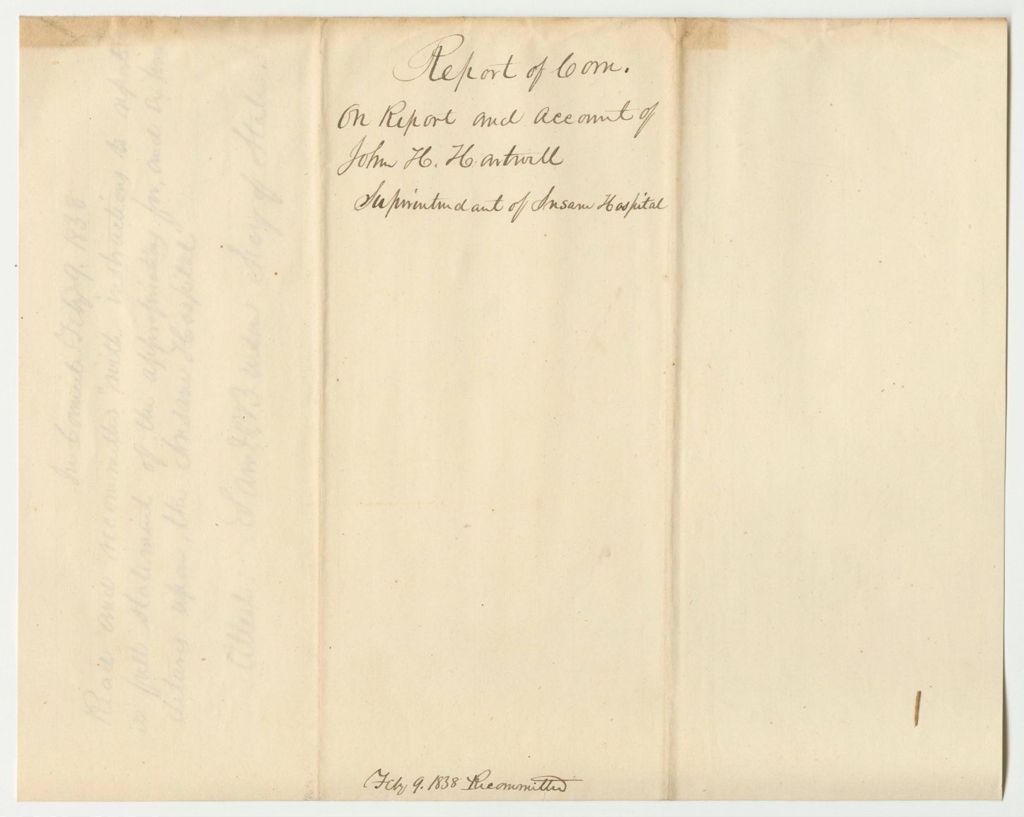 Report of Com.
On Report and account of
John H. Hartwell
Superintendant of Insane Hospital
Feby 9. 1838 Recommitted
In Council Feby 9. 1838
Read and recommitted with instructions to
a full statement of the appropriation for, and
upon the Insane Hospital
Attest: Saml P. Benson Secy of State.